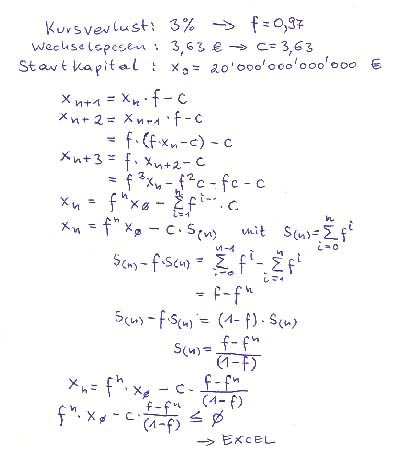 Kursverlust: 3% → f=0,97
Wechselspesen: 3,63 € → c=3,63
Startkapital: x₀= 20'000'000'000'000 €
xₙ₊₁ = xₙ·f-c
xₙ₊₂ = xₙ₊₁·f-c
= f·(f·xₙ-c)-c
xₙ₊₃ = f·xₙ₊₂-c
= f³xₙ-f²c-fc-c
xₙ = fⁿx₀ - ∑ⁿᵢ₌₁ fⁱ⁻¹·c
xₙ = fⁿx₀ - c·S(n) mit S(n)=∑ⁿᵢ₌₀ fⁱ
S(n)-f·S(n) = ∑ⁿ⁻¹ᵢ₌₀ fⁱ - ∑ⁿᵢ₌₁ fⁱ
= f-fⁿ
S(n)-f·S(n) = (1-f)·S(n)
S(n) = (f-fⁿ)/(1-f)
xₙ = fⁿ·x₀ - c·(f-fⁿ)/(1-f)
fⁿ·x₀ - c·(f-fⁿ)/(1-f) ≤ 0
→ EXCEL